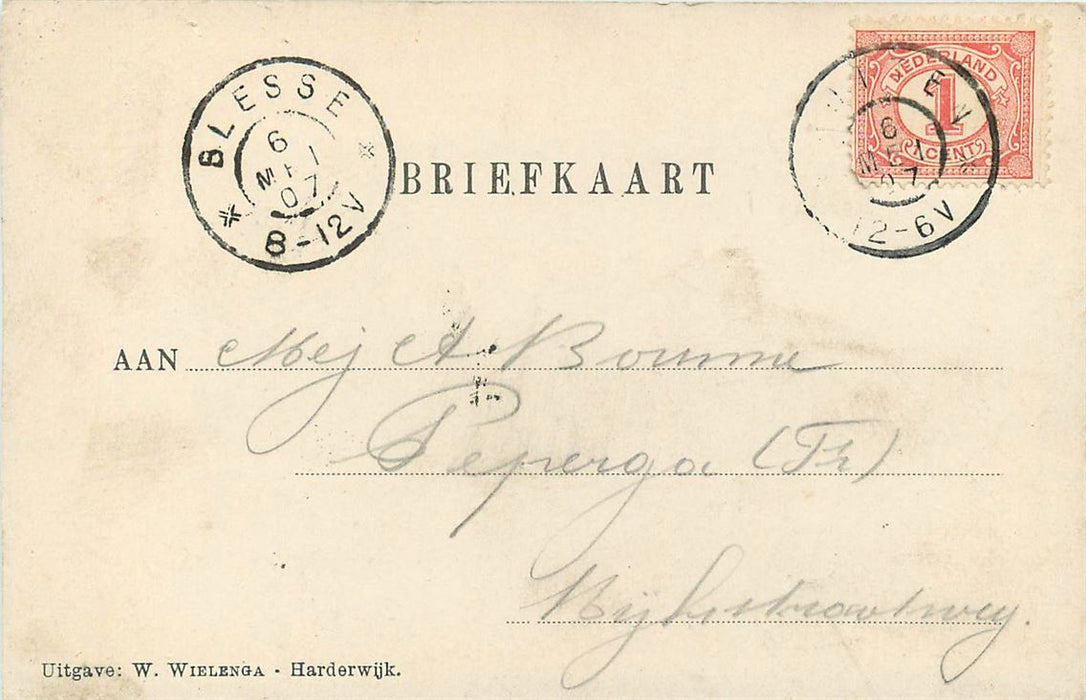 BLESSE
6
MEI
07
8-12V
NEDERLAND
1
CENT
6
MEI
07
12-6V
BRIEFKAART
AAN Mej A Boumme
Peperga (Fr)
Uitgave: W. WIELENGA - Harderwijk.